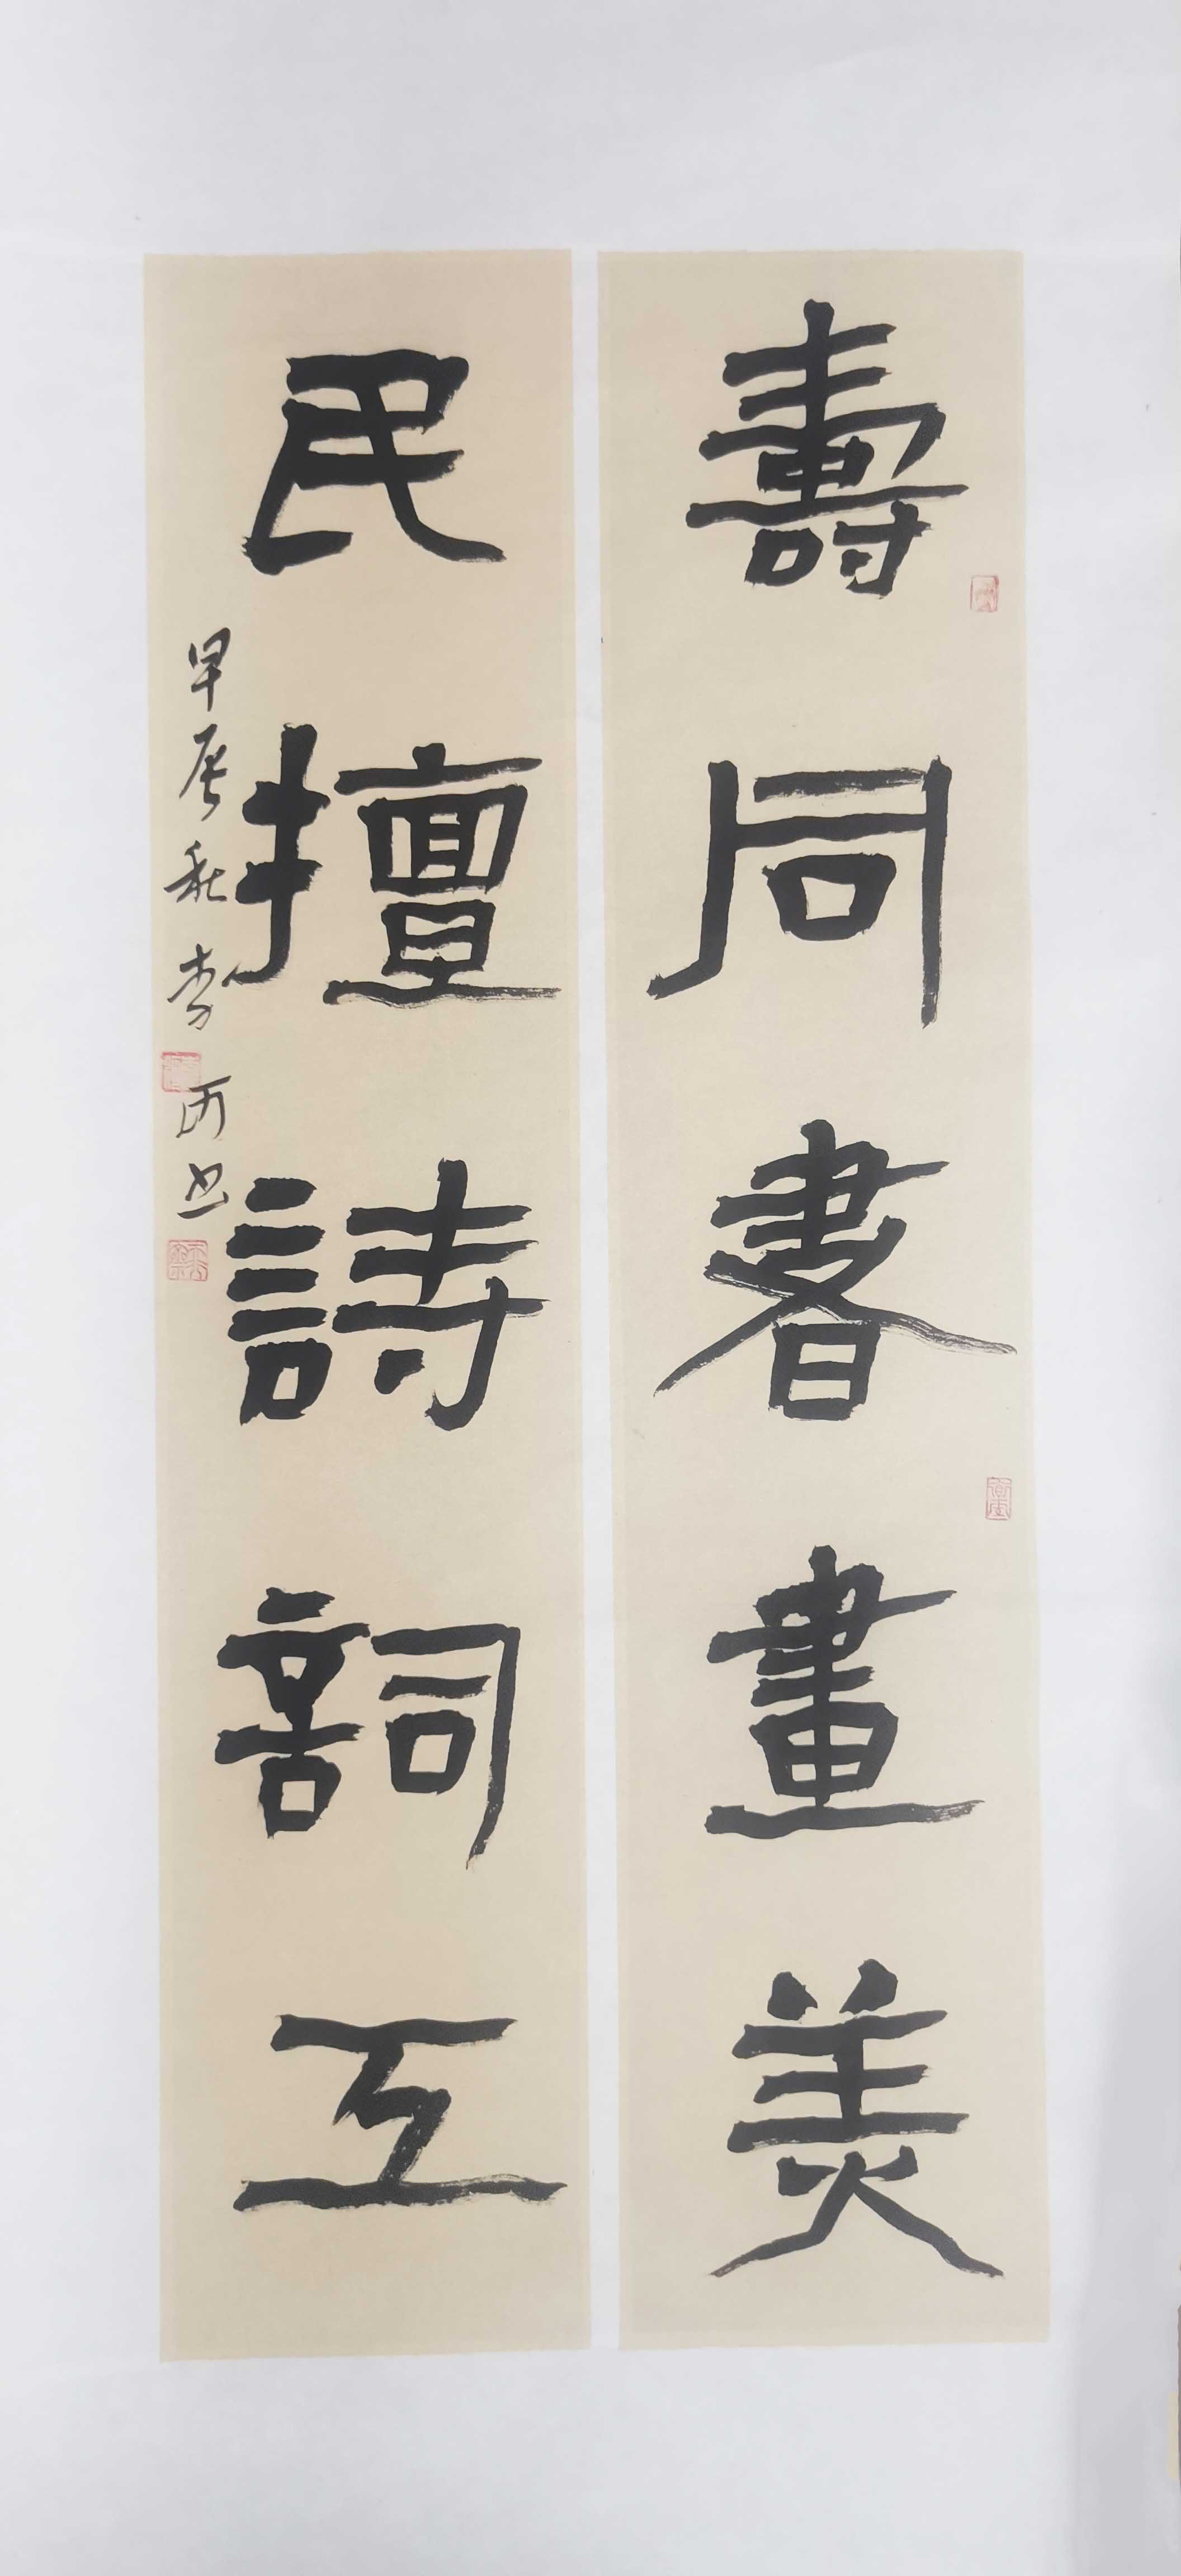 壽同書畫美
民擅詩詞工
甲辰秋李